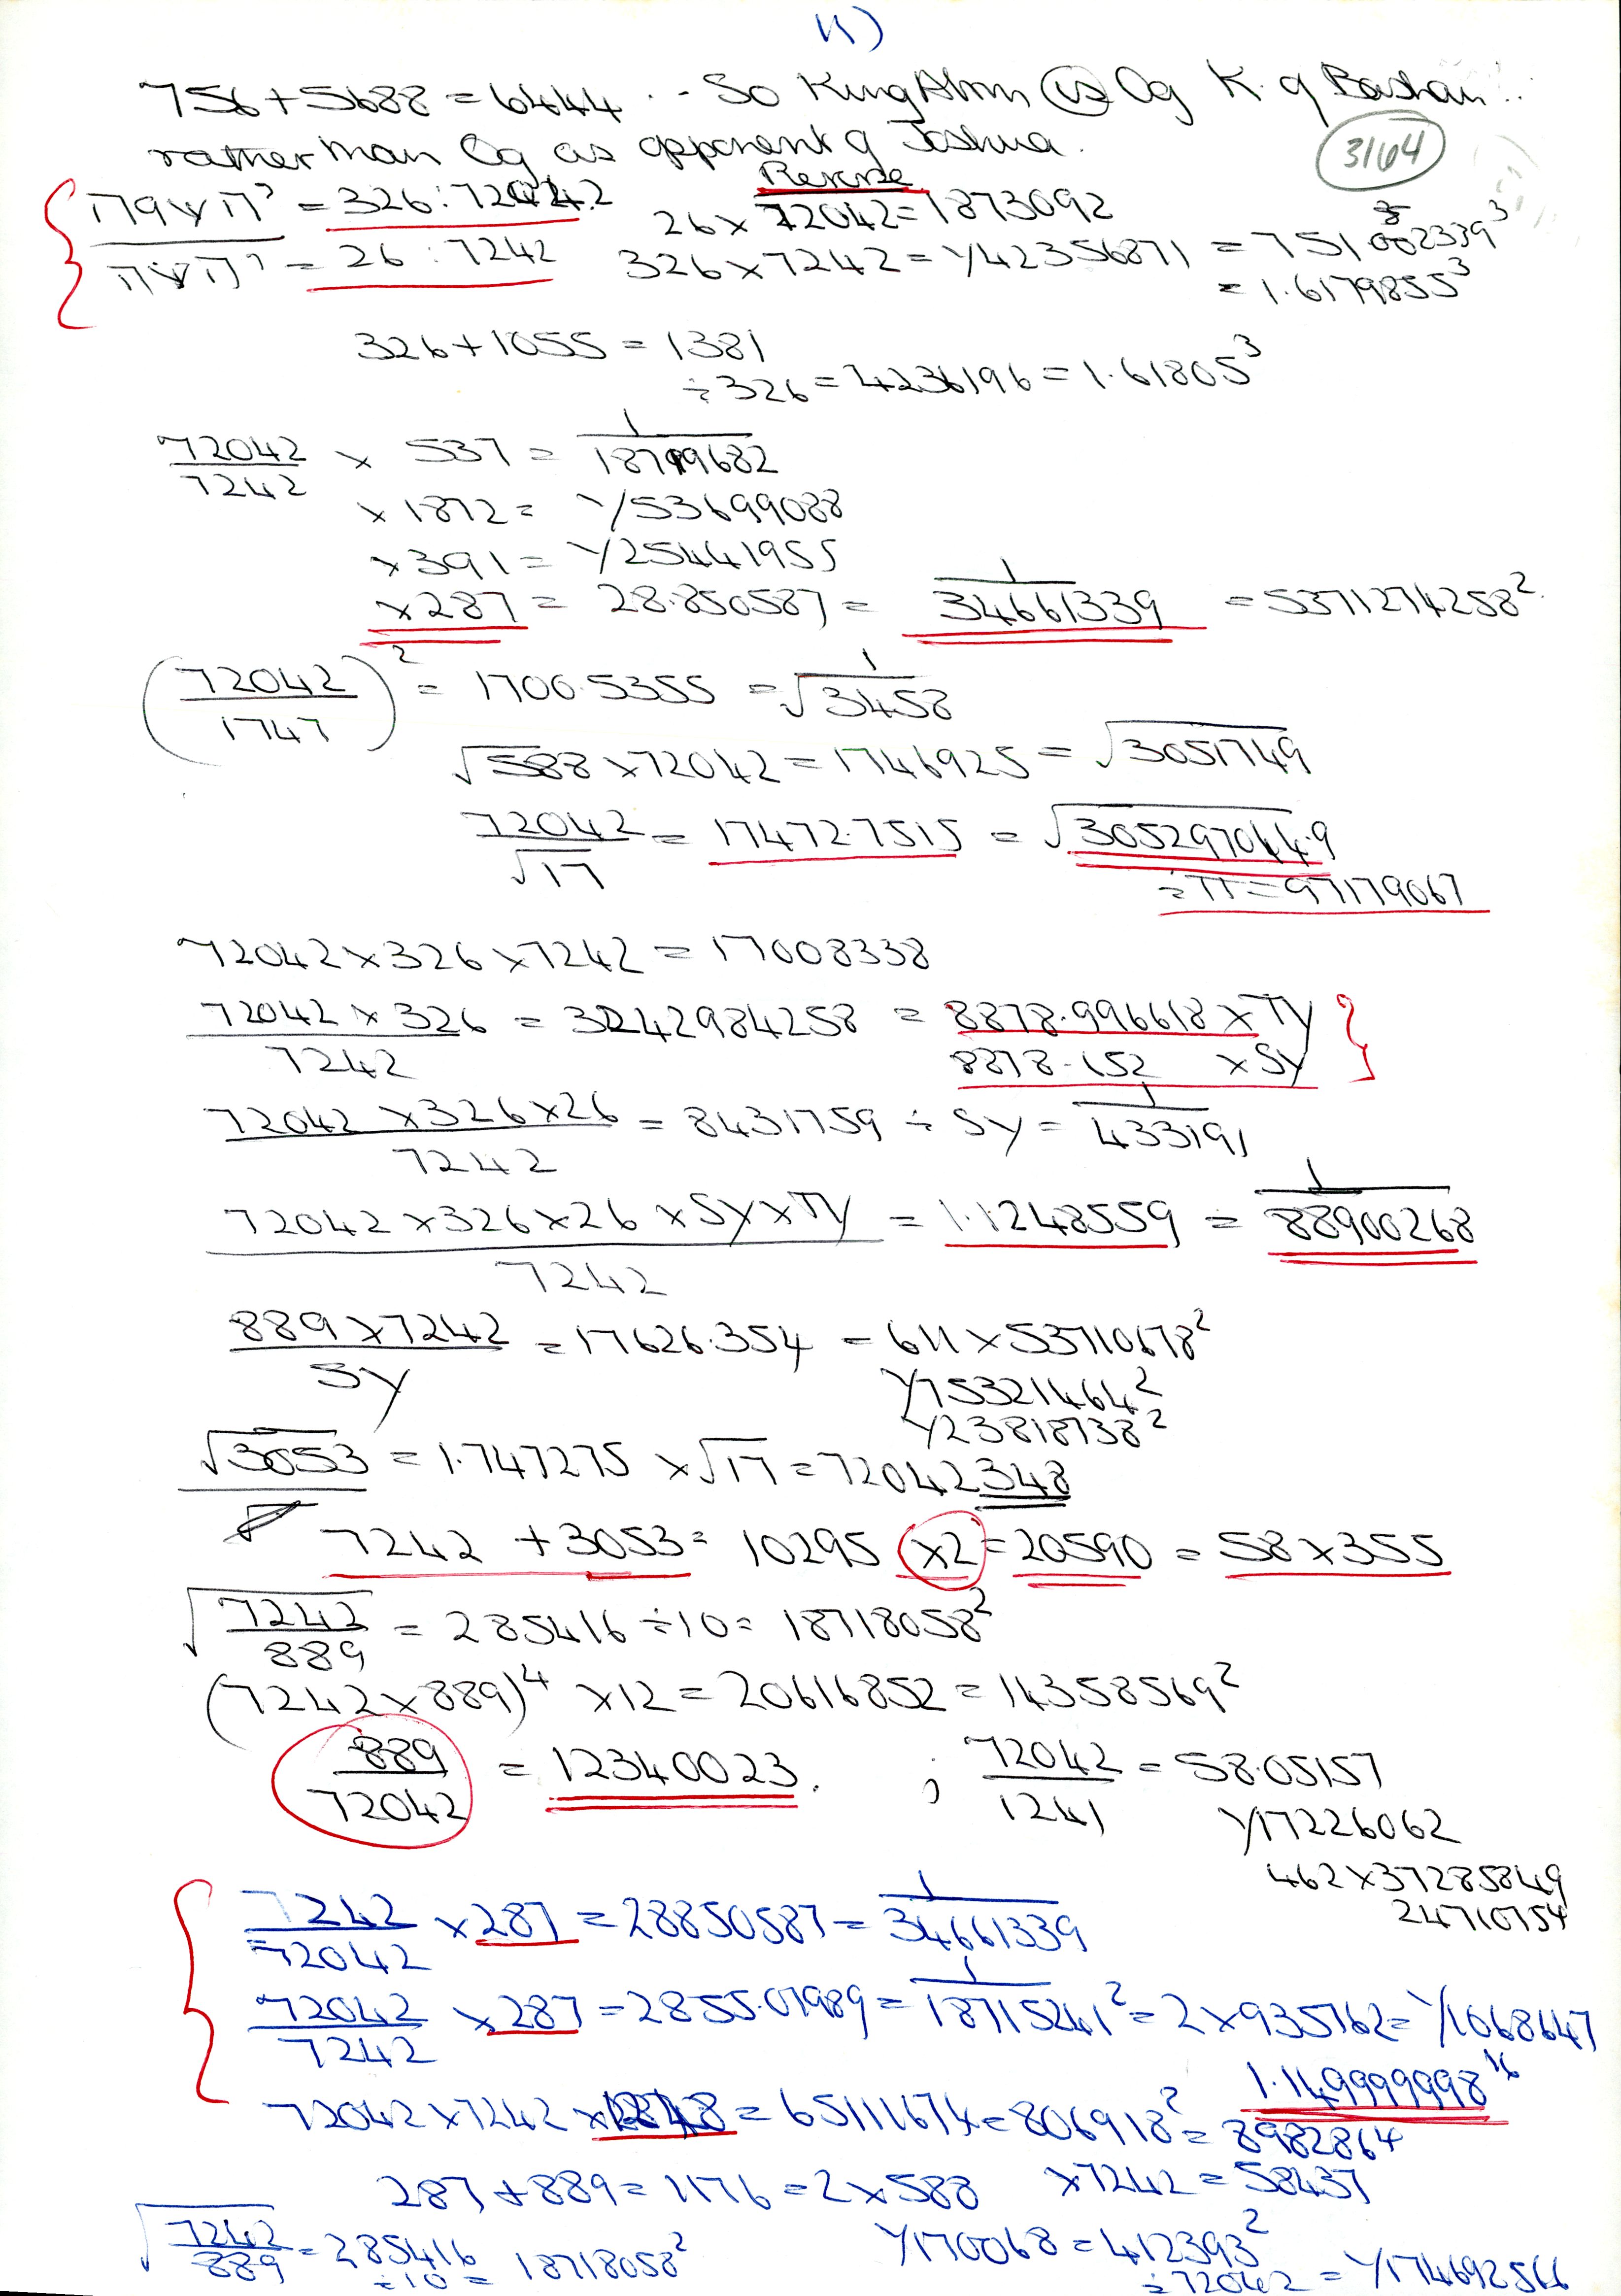 11)
756 + 5688 = 6444 .. So King Ahm is Og K. of Bashan ..
rather than Og as opponent of Joshua.
3164
= 326 : 72042
Reverse
26 x 72042 = 1873092
= 26 : 7242
326 x 7242 = 1/42356871 = 751.002339³
= 1.6179855³
326 + 1055 = 1381
÷ 326 = 4236196 = 1.61805³
72042/7242 x 537 = 1/18719682
x 1872 = 1/53699088
x 391 = 1/25441955
x 287 = 28.850587 = 1/34661339 = 5371274258²
(72042/1747)² = 1700.5355 = √1/3458
√588 x 72042 = 1746925 = √3051749
72042/√17 = 17472.7515 = √305297044.9
÷ π = 97179067
72042 x 326 x 7242 = 17008338
72042 x 326/7242 = 3242984258 = 8878.996618 x TY
8878.152 x SY
72042 x 326 x 26/7242 = 8431759 ÷ SY = 1/433191
72042 x 326 x 26 x SY x TY/7242 = 1.1248559 = 1/88900268
889 x 7242/SY = 17626.354 = 611 x 53710678²
1/75321464²
1/23818738²
√3053 = 1.747275 x √17 = 72042348
7242 + 3053 = 10295 x2 = 20590 = 58 x 355
√7242/889 = 285416 ÷ 10 = 18718058²
(7242 x 889)⁴ x 12 = 20616852 = 14358569²
889/72042 = 12340023. ; 72042/1241 = 58.05157
1/17226062
462 x 37285849
24710754
7242/72042 x 287 = 28850587 = 1/34661339
72042/7242 x 287 = 2855.01989 = 1/18715241² = 2 x 935762 = 1/1068647
1.149999998¹⁶
72042 x 7242 x = 65111674 = 806918² = 8982864
287 + 889 = 1176 = 2 x 588 x 7242 = 58437
√7242/889 = 285416 ÷ 10 = 18718058²
1/170068 = 412393²
÷ 72042 = 1/174692566